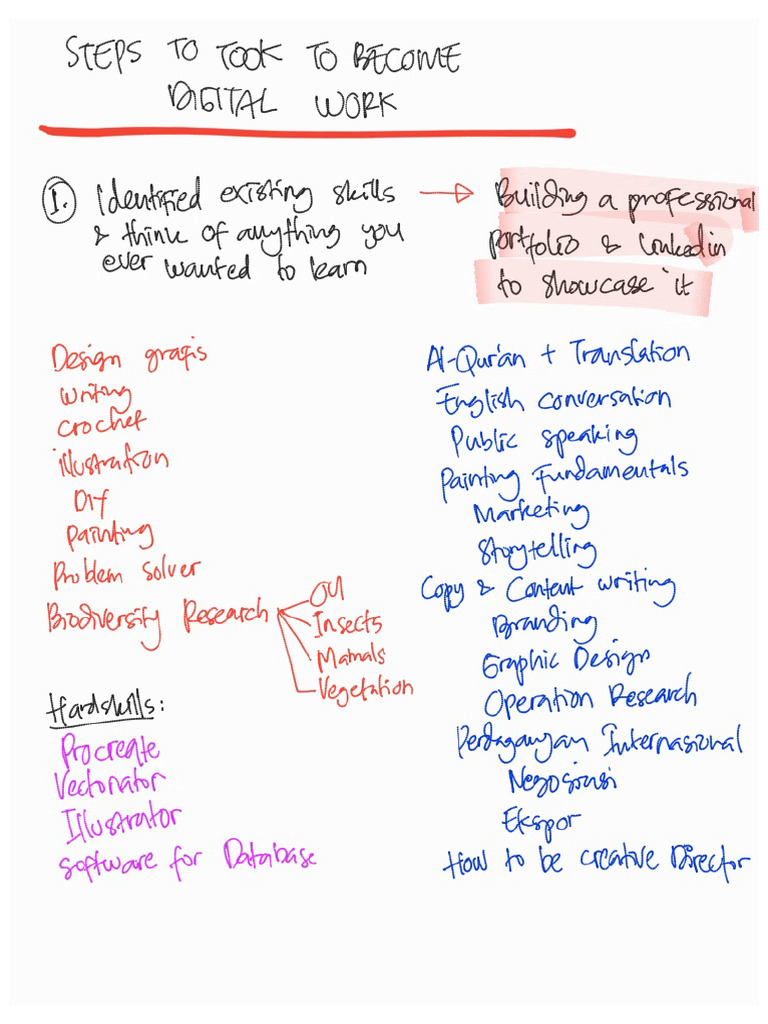 STEPS TO TOOK TO BECOME
DIGITAL WORK
1. Identified existing skills
& think of anything you
ever wanted to learn
Building a professional
portfolio & linkedin
to showcase it
Design grafis
Writing
crochet
illustration
DIY
Painting
Problem solver
Biodiversity Research
Insects
Mamals
Vegetation
Hardskills:
Procreate
Vectonator
Illustrator
software for Database
Al-Qur'an + Translation
English conversation
Public speaking
Painting Fundamentals
Marketing
Storytelling
Copy & Content writing
Branding
Graphic Design
Operation Research
Perdagangan Internasional
Negosiasi
Ekspor
How to be creative Director